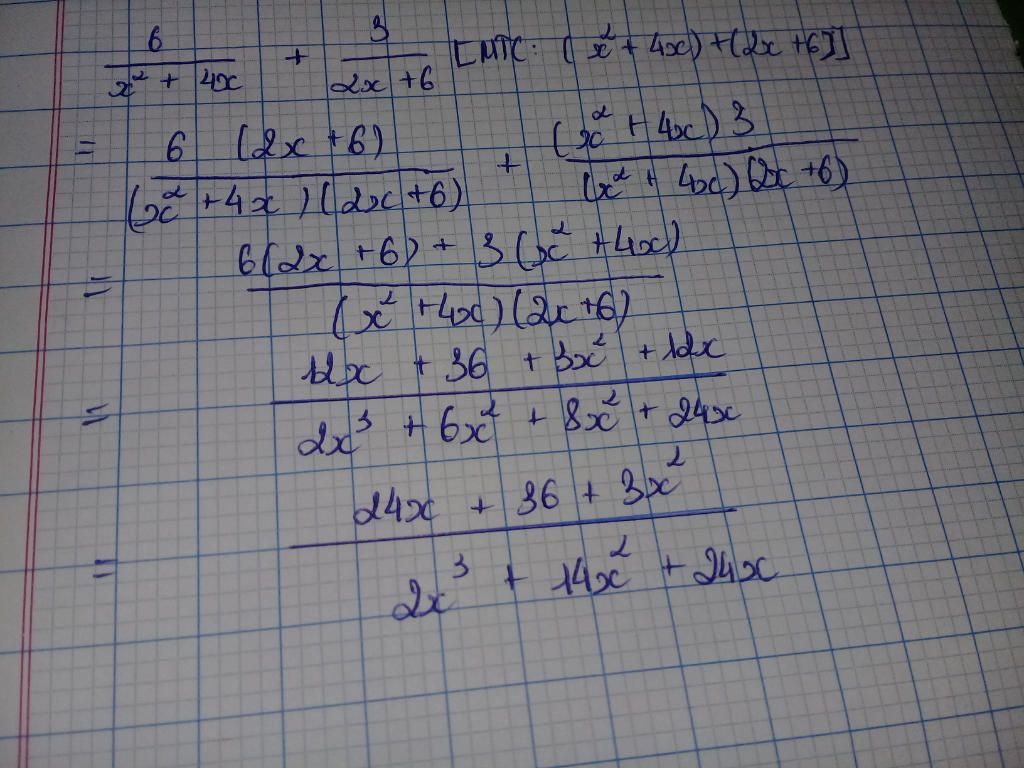 6/(x² + 4x) + 3/(2x + 6) [MTC: (x² + 4x) + (2x + 6)]
= 6 (2x + 6)/((x² + 4x)(2x + 6)) + (x² + 4x) 3/((x² + 4x)(2x + 6))
= (6(2x + 6) + 3(x² + 4x))/((x² + 4x)(2x + 6))
= (12x + 36 + 3x² + 12x)/(2x³ + 6x² + 8x² + 24x)
= (24x + 36 + 3x²)/(2x³ + 14x² + 24x)